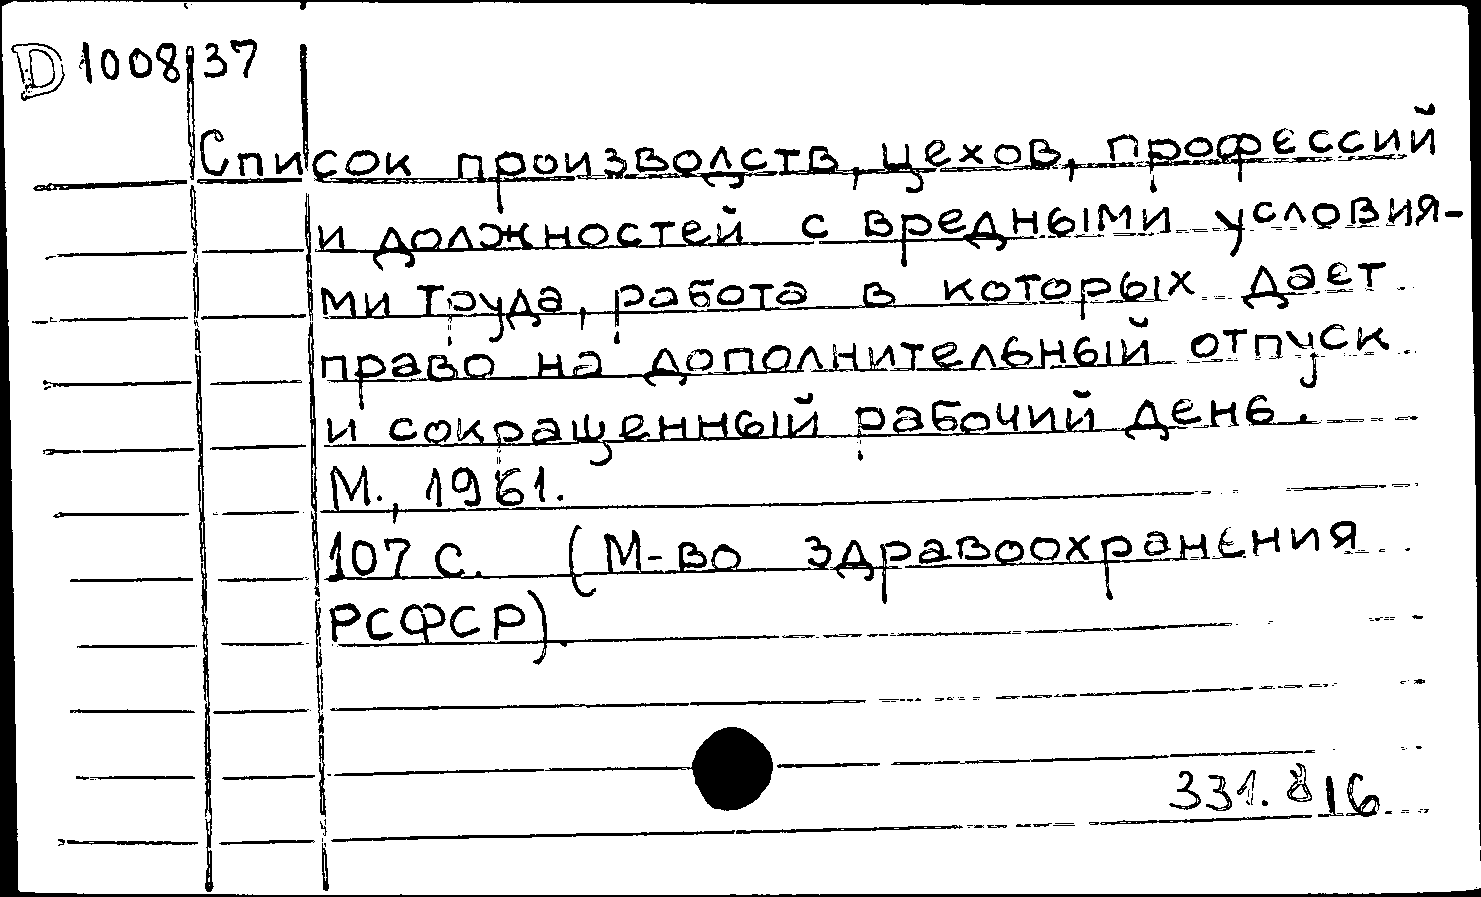 D 1008/37
Список производств, цехов, профессий
и должностей с вредными условия-
ми труда, работа в которых дает
право на дополнительный отпуск
и сокращенный рабочий день.
М., 1961.
107 с. (М-во здравоохранения
РСФСР).
331.816